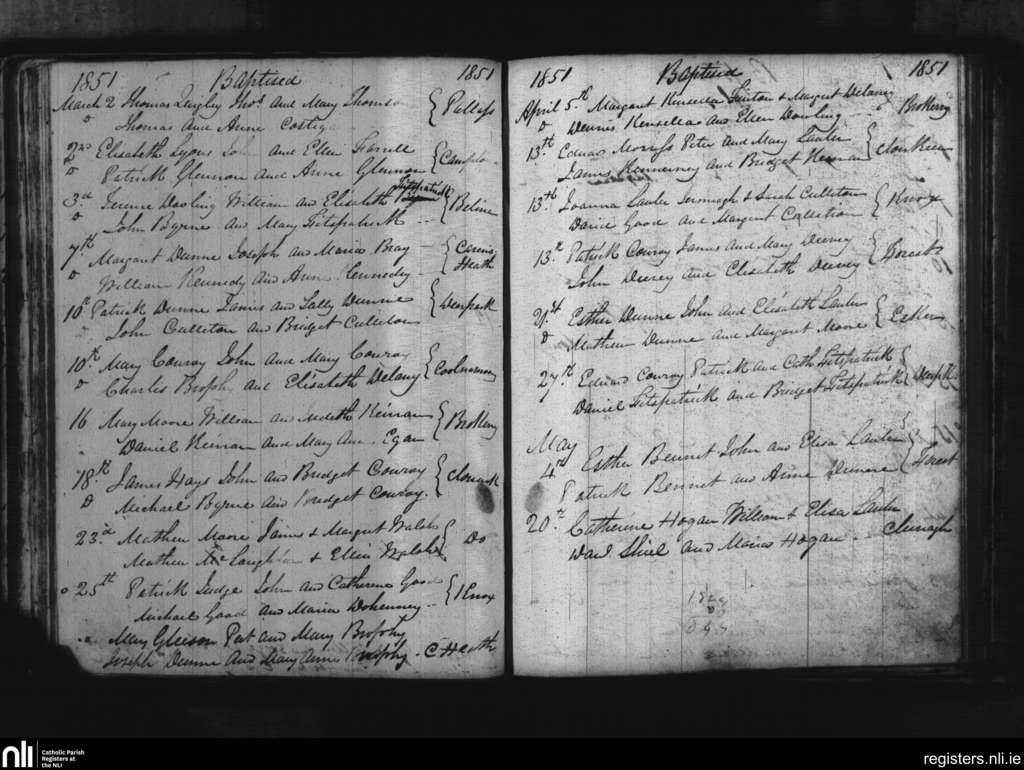 1851 Baptised 1851
March 2 Thomas Quigley Thos and Mary Thomson { Pallass
Do Thomas and Anne Costiga
2nd Elisabeth Lyons John and Ellen Farrell
Do Patrick Glennon and Anne Glennon
3rd Terence Dowling William and Elisabeth Fitzpatrick { Beline
Do John Byrne and Mary Fitzpatrick
7th Margaret Dunne Joseph and Maria Bray { Heath
Do William Kennedy and Anne Kennedy
10th Patrick Dunne James and Sally Dunne { Deerpark
John Culleton and Bridget Culleton
10th Mary Conroy John and Mary Conroy
Do Charles Brophy and Elisabeth Delany
16 Mary Moore William and Judith Keirnan
Daniel Keirnan and Mary Anne Egan
18th James Hays John and Bridget Conroy
Do Michael Byrne and Bridget Conroy.
23rd Mathew Moore James & Margret Walsh { Do
Mathew McLaughlin & Ellen Walsh
25th Patrick Judge John and Catherine Good { Knox
Michael Good and Maria
Mary Gleeson Pat and Mary Brophy
Joseph Dunne and Mary Anne Brophy - C Heath
1851 Baptised 1851
April 5th Margaret Kensella Finton & Margret Delany
Do Dennis Kensella and Ellen Dowling
13th Edward Morriss Peter and Mary Lawler
James and Bridget
13th Joanna Lawler and Sarah Culleton { Knox
David Good and Margret Culletion
13th Patrick Conroy James and Mary Deevey { Forest
John Deevey and Elisabeth Deevey
21st Esther Dunne John and Elisabeth Lawler { Esker
Do Mathew Dunne and Margaret Moore
27th Edward Conroy Patrick and Cath Fitzpatrick
Daniel Fitzpatrick and Bridget Fitzpatrick
May
4th Esther Bennet John and Elisa Lawler
Patrick Bennet and Anne Dunne { Forest
20th Catherine Hogan William & Elisa Lawler
Shiel and Maria Hogan - Clenagh
nli Catholic Parish
Registers at
the NLI
registers.nli.ie